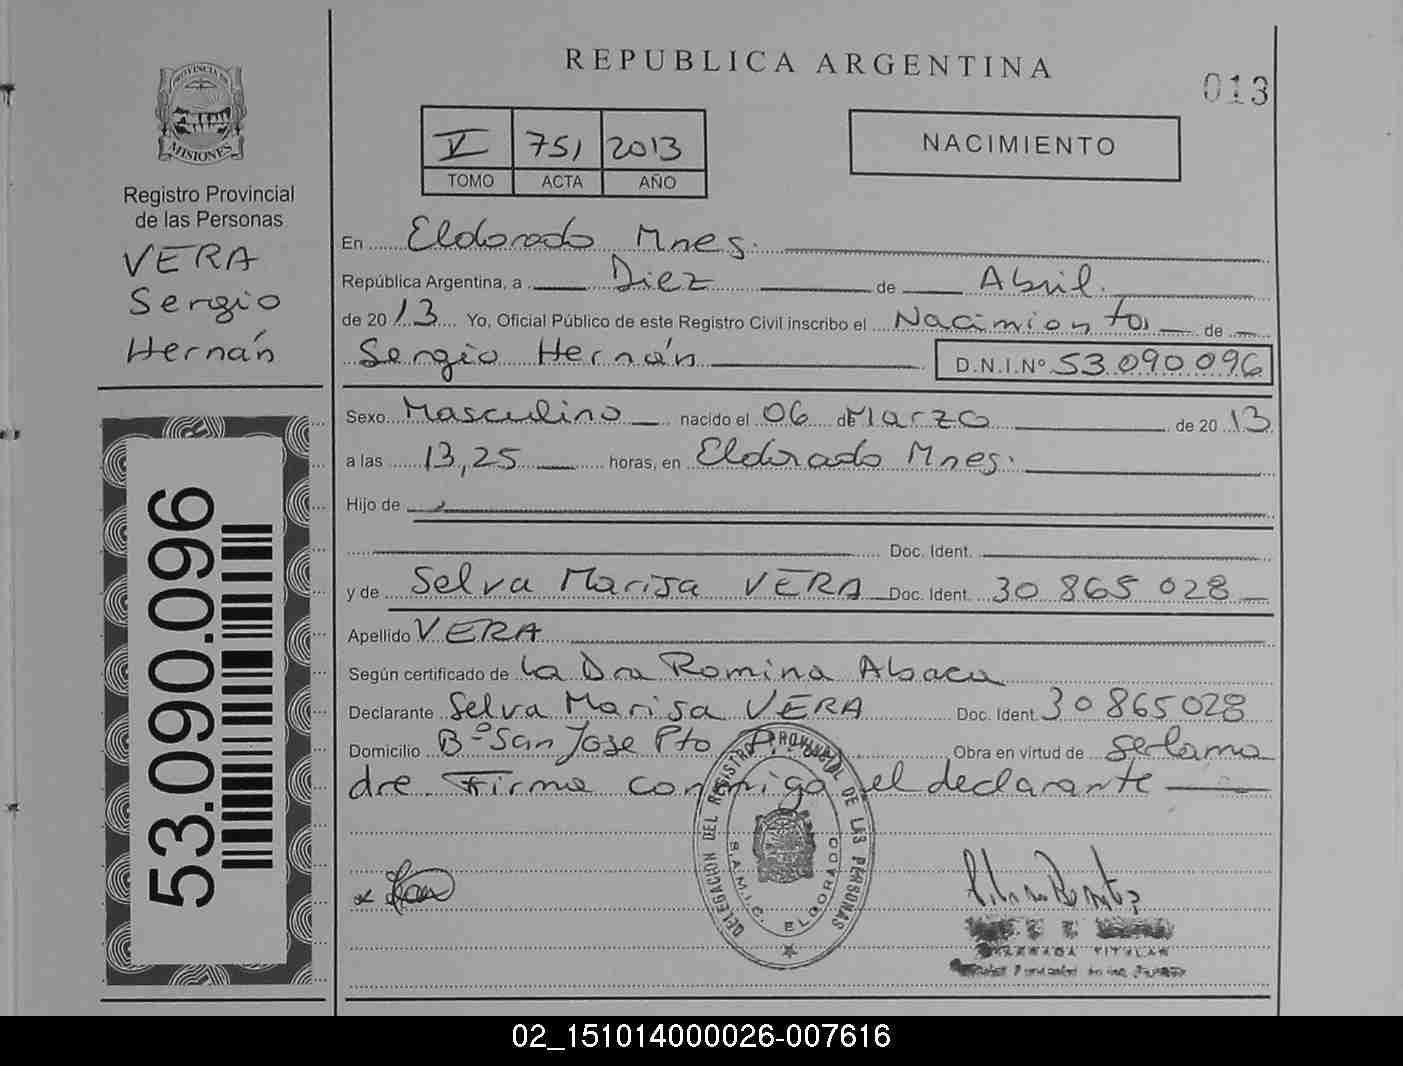 REPUBLICA ARGENTINA
013
PROVINCIA DE
MISIONES
Registro Provincial
de las Personas
VERA
Sergio
Hernán
V 751 2013
TOMO ACTA AÑO
NACIMIENTO
En Eldorado Mnes.
República Argentina, a Diez de Abril
de 2013 Yo, Oficial Público de este Registro Civil inscribo el Nacimiento de
Sergio Hernán D.N.I.Nº 53.090.096
Sexo Masculino nacido el 06 de Marzo de 2013
a las 13,25 horas, en Eldorado Mnes.
Hijo de
Doc. Ident.
y de Selva Marisa VERA Doc. Ident. 30 865 028
Apellido VERA
Según certificado de la Dra Romina Abaca
Declarante Selva Marisa VERA Doc. Ident. 30 865 028
Domicilio Bº San Jose Pto Obra en virtud de ser la ma
dre Firma conmigo el declarante
53.090.096
DELEGACION DEL REGISTRO PROVINCIAL DE LAS PERSONAS
S.A.M.I.C. ELDORADO
TITULAR
02_151014000026-007616